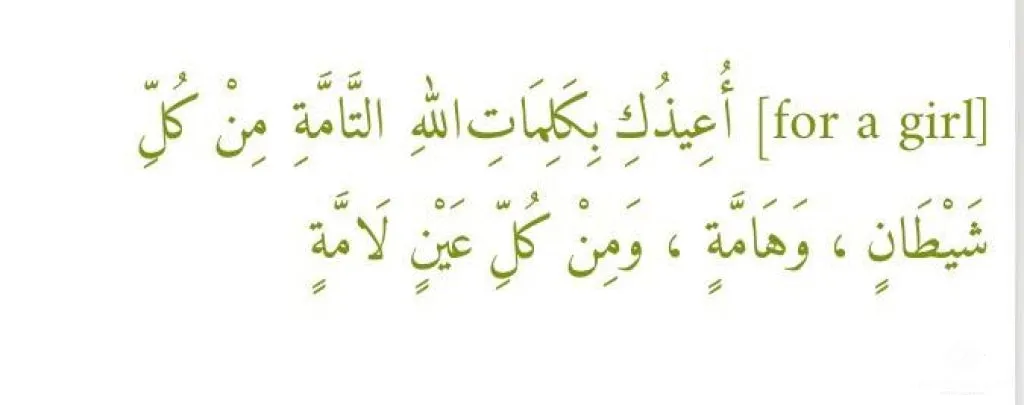 [for a girl] أُعِيذُكِ بِكَلِمَاتِ اللهِ التَّامَّةِ مِنْ كُلِّ
شَيْطَانٍ ، وَهَامَّةٍ ، وَمِنْ كُلِّ عَيْنٍ لَامَّةٍ